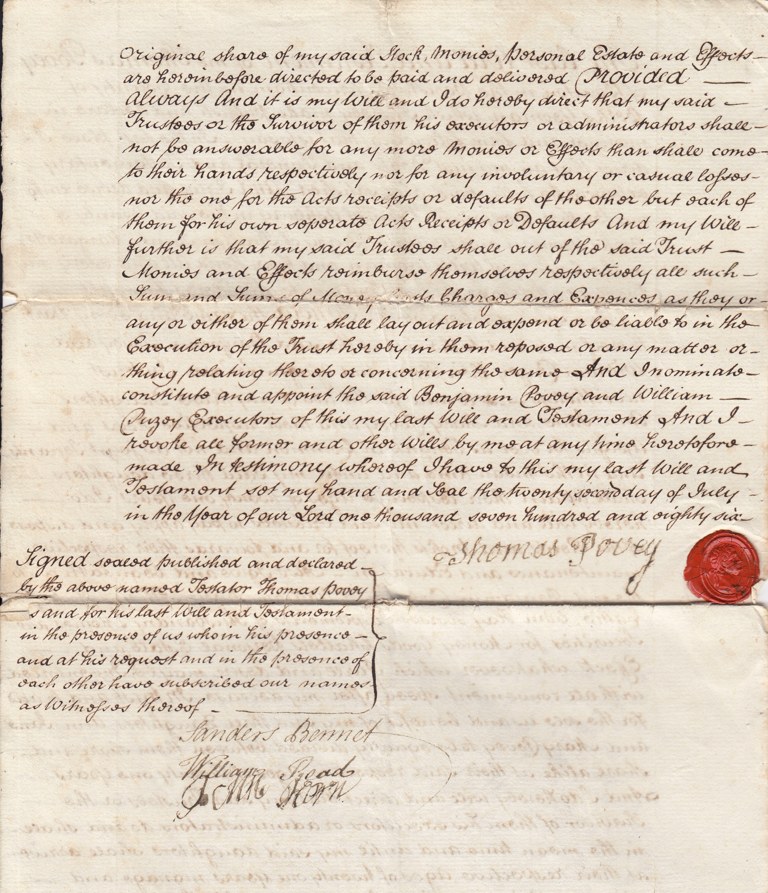 Original share of my said Stock, Monies, Personal Estate and Effects
are hereinbefore directed to be paid and delivered Provided
Always And it is my Will and I do hereby direct that my said
Trustees or the Survivor of them his executors or administrators shall
not be answerable for any more Monies or Effects than shall come
to their hands respectively nor for any involuntary or casual losses
nor the one for the Acts receipts or defaults of the other but each of
them for his own seperate Acts Receipts or Defaults And my Will
further is that my said Trustees shall out of the said Trust
Monies and Effects reimburse themselves respectively all such
Sum and Sums of Money Charges and Expences as they or
any or either of them shall lay out and expend or be liable to in the
Execution of the Trust hereby in them reposed or any matter or
thing relating thereto or concerning the same And I nominate
constitute and appoint the said Benjamin Povey and William
Puzey Executors of this my last Will and Testament And I
revoke all former and other Wills by me at any time heretofore
made In testimony whereof I have to this my last Will and
Testament set my hand and Seal the twenty second day of July
in the Year of our Lord one thousand seven hundred and eighty six
Thomas Povey
Signed sealed published and declared
by the above named Testator Thomas Povey
as and for his last Will and Testament
in the presence of us who in his presence
and at his request and in the presence of
each other have subscribed our names
as Witnesses thereof
Sanders Bennet
William Read